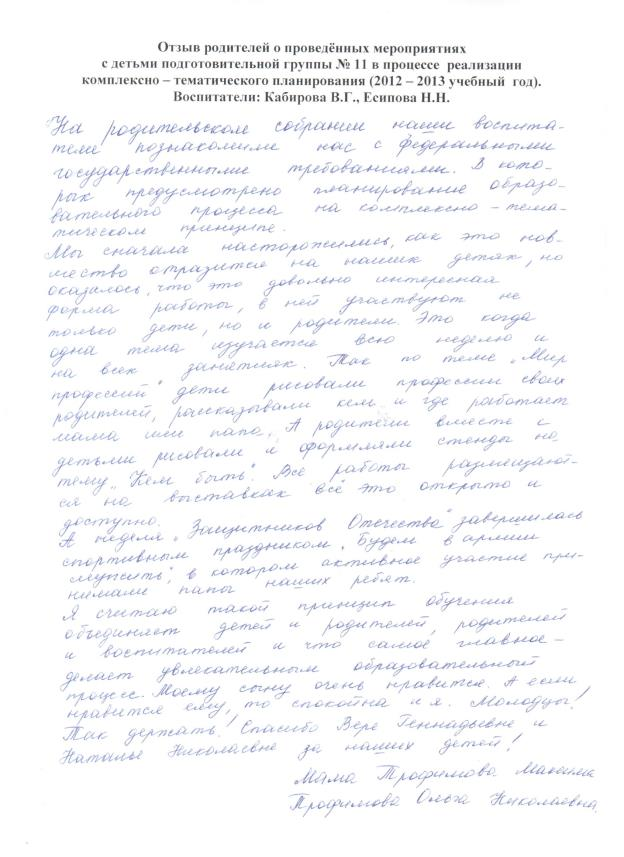 Отзыв родителей о проведённых мероприятиях
с детьми подготовительной группы № 11 в процессе реализации
комплексно – тематического планирования (2012 – 2013 учебный год).
Воспитатели: Кабирова В.Г., Есипова Н.Н.
На родительском собрании наши воспита-
тели познакомили нас с Федеральными
государственными требованиями. В кото-
рых предусмотрено планирование образо-
вательного процесса на комплексно - тема-
тическом принципе.
Мы сначала насторожились, как это нов-
шество отразится на наших детях, но
оказалось, что это довольно интересная
форма работы, в ней участвуют не
только дети, но и родители. Это когда
одна тема изучается всю неделю и
на всех занятиях. Так по теме „Мир
профессий" дети рисовали профессии своих
родителей, рассказывали кем и где работает
мама или папа. А родители вместе с
детьми рисовали и оформляли стенды на
тему „Кем быть". Все работы размещают-
ся на выставках всё это открыто и
доступно.
А неделя „Защитников Отечества" завершилась
спортивным праздником „Будем в армии
служить", в котором активное участие при-
нимали папы наших ребят.
Я считаю такой принцип обучения
объединяет детей и родителей, родителей
и воспитателей и что самое главное -
делает увлекательным образовательный
процесс. Моему сыну очень нравится. А если
нравится ему, то спокойна и я. Молодцы!
Так держать! Спасибо Вере Геннадьевне и
Наталье Николаевне за наших детей!
Мама Трофимова Максима
Трофимова Ольга Николаевна.